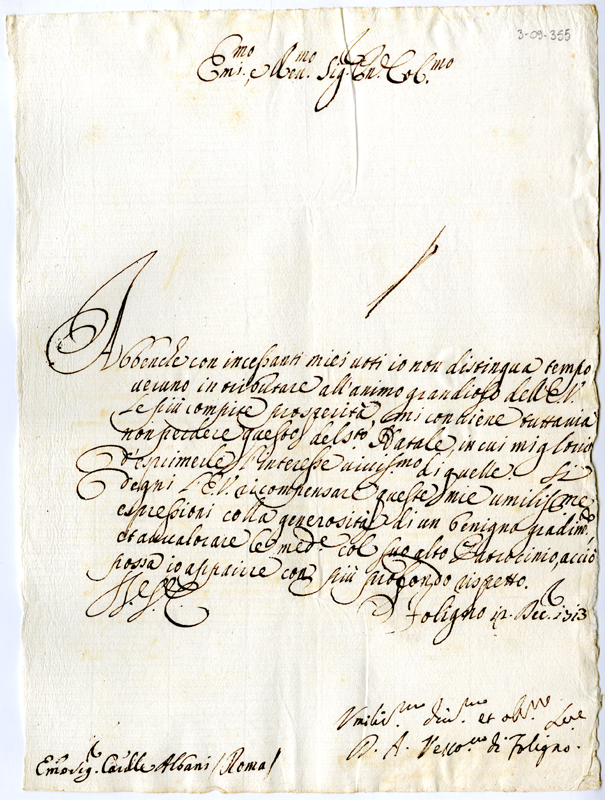 3-09-355
Em.mo, e Ren.mo Sig.r Pn. Col.mo
Abbenche con incessanti miei uoti io non distingua tempo
ueruno in tributare all'animo grandioso dell'E.V.
le più compite prosperità, mi conuiene tuttauia
non perdere queste del S.to Natale, in cui mi glorio
d'esprimerle l'interesse uiuissimo di quelle. Si
degni l'E.V. ricompensare queste mie umilissime
espressioni colla generosità di un benigno gradim.to
et aualorare le med.e col suo alto Patrocinio, acciò
possa io apparire con più profondo rispetto.
D. Foligno 12. Dec.
Umiliss.mo diu.mo et obb.mo Ser.e
D. A. Vesco.uo di Foligno.
Emo Sig.r Cardle Albani / Roma /